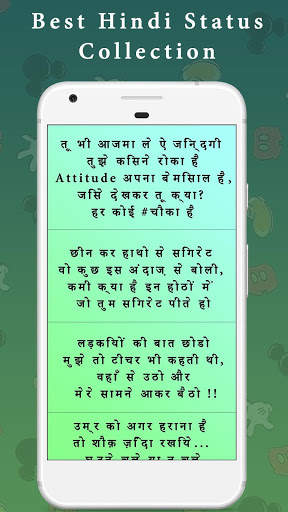 Best Hindi Status
Collection
तू भी आजमा ले ऐ जिन्दगी
तुझे किसने रोका है
Attitude अपना बेमिसाल है,
जिसे देखकर तू क्या?
हर कोई #चौका है
छीन कर हाथो से सिगरेट
वो कुछ इस अंदाज़ से बोली,
कमी क्या है इन होठों में
जो तुम सिगरेट पीते हो
लड़कियों की बात छोडो
मुझे तो टीचर भी कहती थी,
वहाँ से उठो और
मेरे सामने आकर बैठो !!
उम्र को अगर हराना है
तो शौक़ ज़िंदा रखिये...